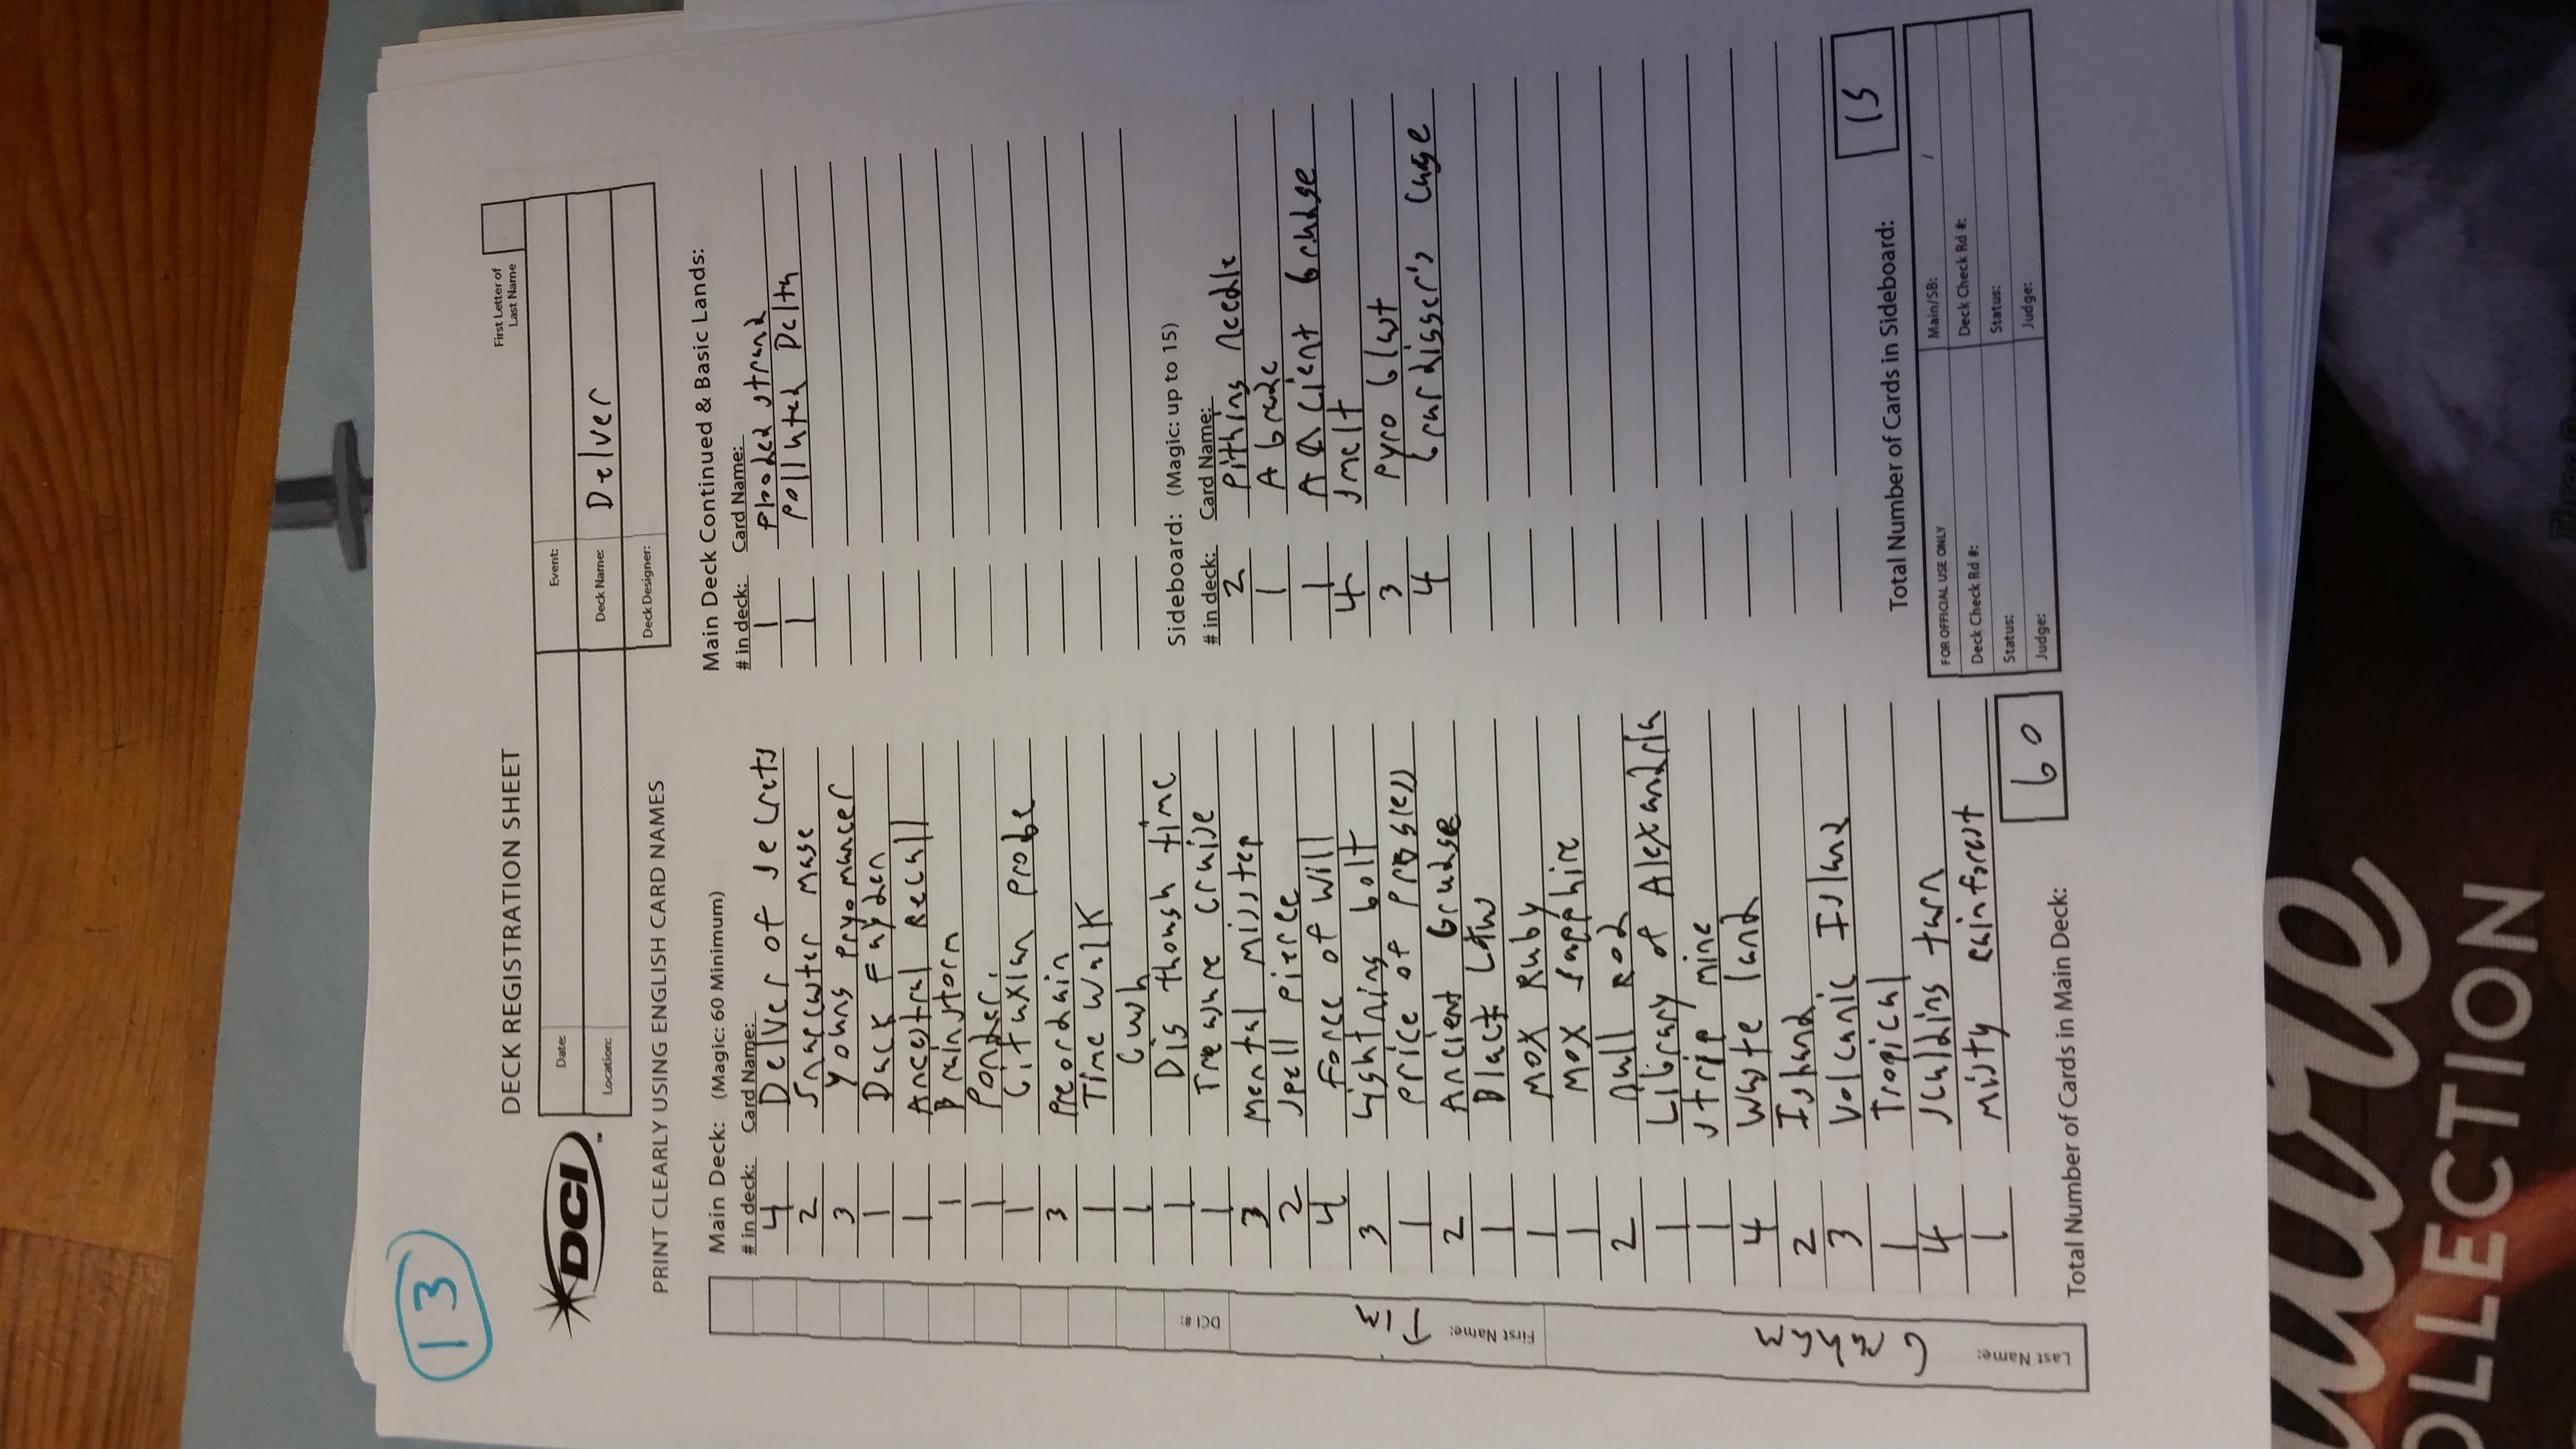 13
DECK REGISTRATION SHEET
First Letter of
Last Name
DCI
Date:
Event:
Location:
Deck Name: Delver
Deck Designer:
PRINT CLEARLY USING ENGLISH CARD NAMES
Main Deck: (Magic: 60 Minimum)
# in deck: Card Name:
4 Delver of secrets
2 Snapcaster mage
3 Young pryomancer
1 Dack Fayden
1 Ancestral Recall
1 Brainstorm
1 Ponder.
1 Gitaxian probe
3 Preordain
1 Time Walk
1 Gush
1 Dig though time
1 Treasure cruise
3 mental misstep
2 spell pierce
4 Force of Will
3 Lightning bolt
1 price of progress
2 Ancient Grudge
1 Black Lotus
1 MOX Ruby
1 MOX sapphire
2 null rod
1 Library of Alexandria
1 strip mine
4 waste land
2 Island
3 Volcanic Island
1 Tropical
4 scalding tarn
1 misty rainforest
Total Number of Cards in Main Deck: 60
Main Deck Continued & Basic Lands:
# in deck: Card Name:
1 flooded strand
1 polluted Delta
Sideboard: (Magic: up to 15)
# in deck: Card Name:
2 pithing needle
1 Abrade
1 Ancient Grudge
4 smelt
3 pyro blast
4 Grafdigger's cage
Total Number of Cards in Sideboard: 15
FOR OFFICIAL USE ONLY
Main/SB: /
Deck Check Rd #:
Deck Check Rd #:
Status:
Status:
Judge:
Judge:
DCI #:
First Name: Tim
Last Name: Graham
OLLECTION